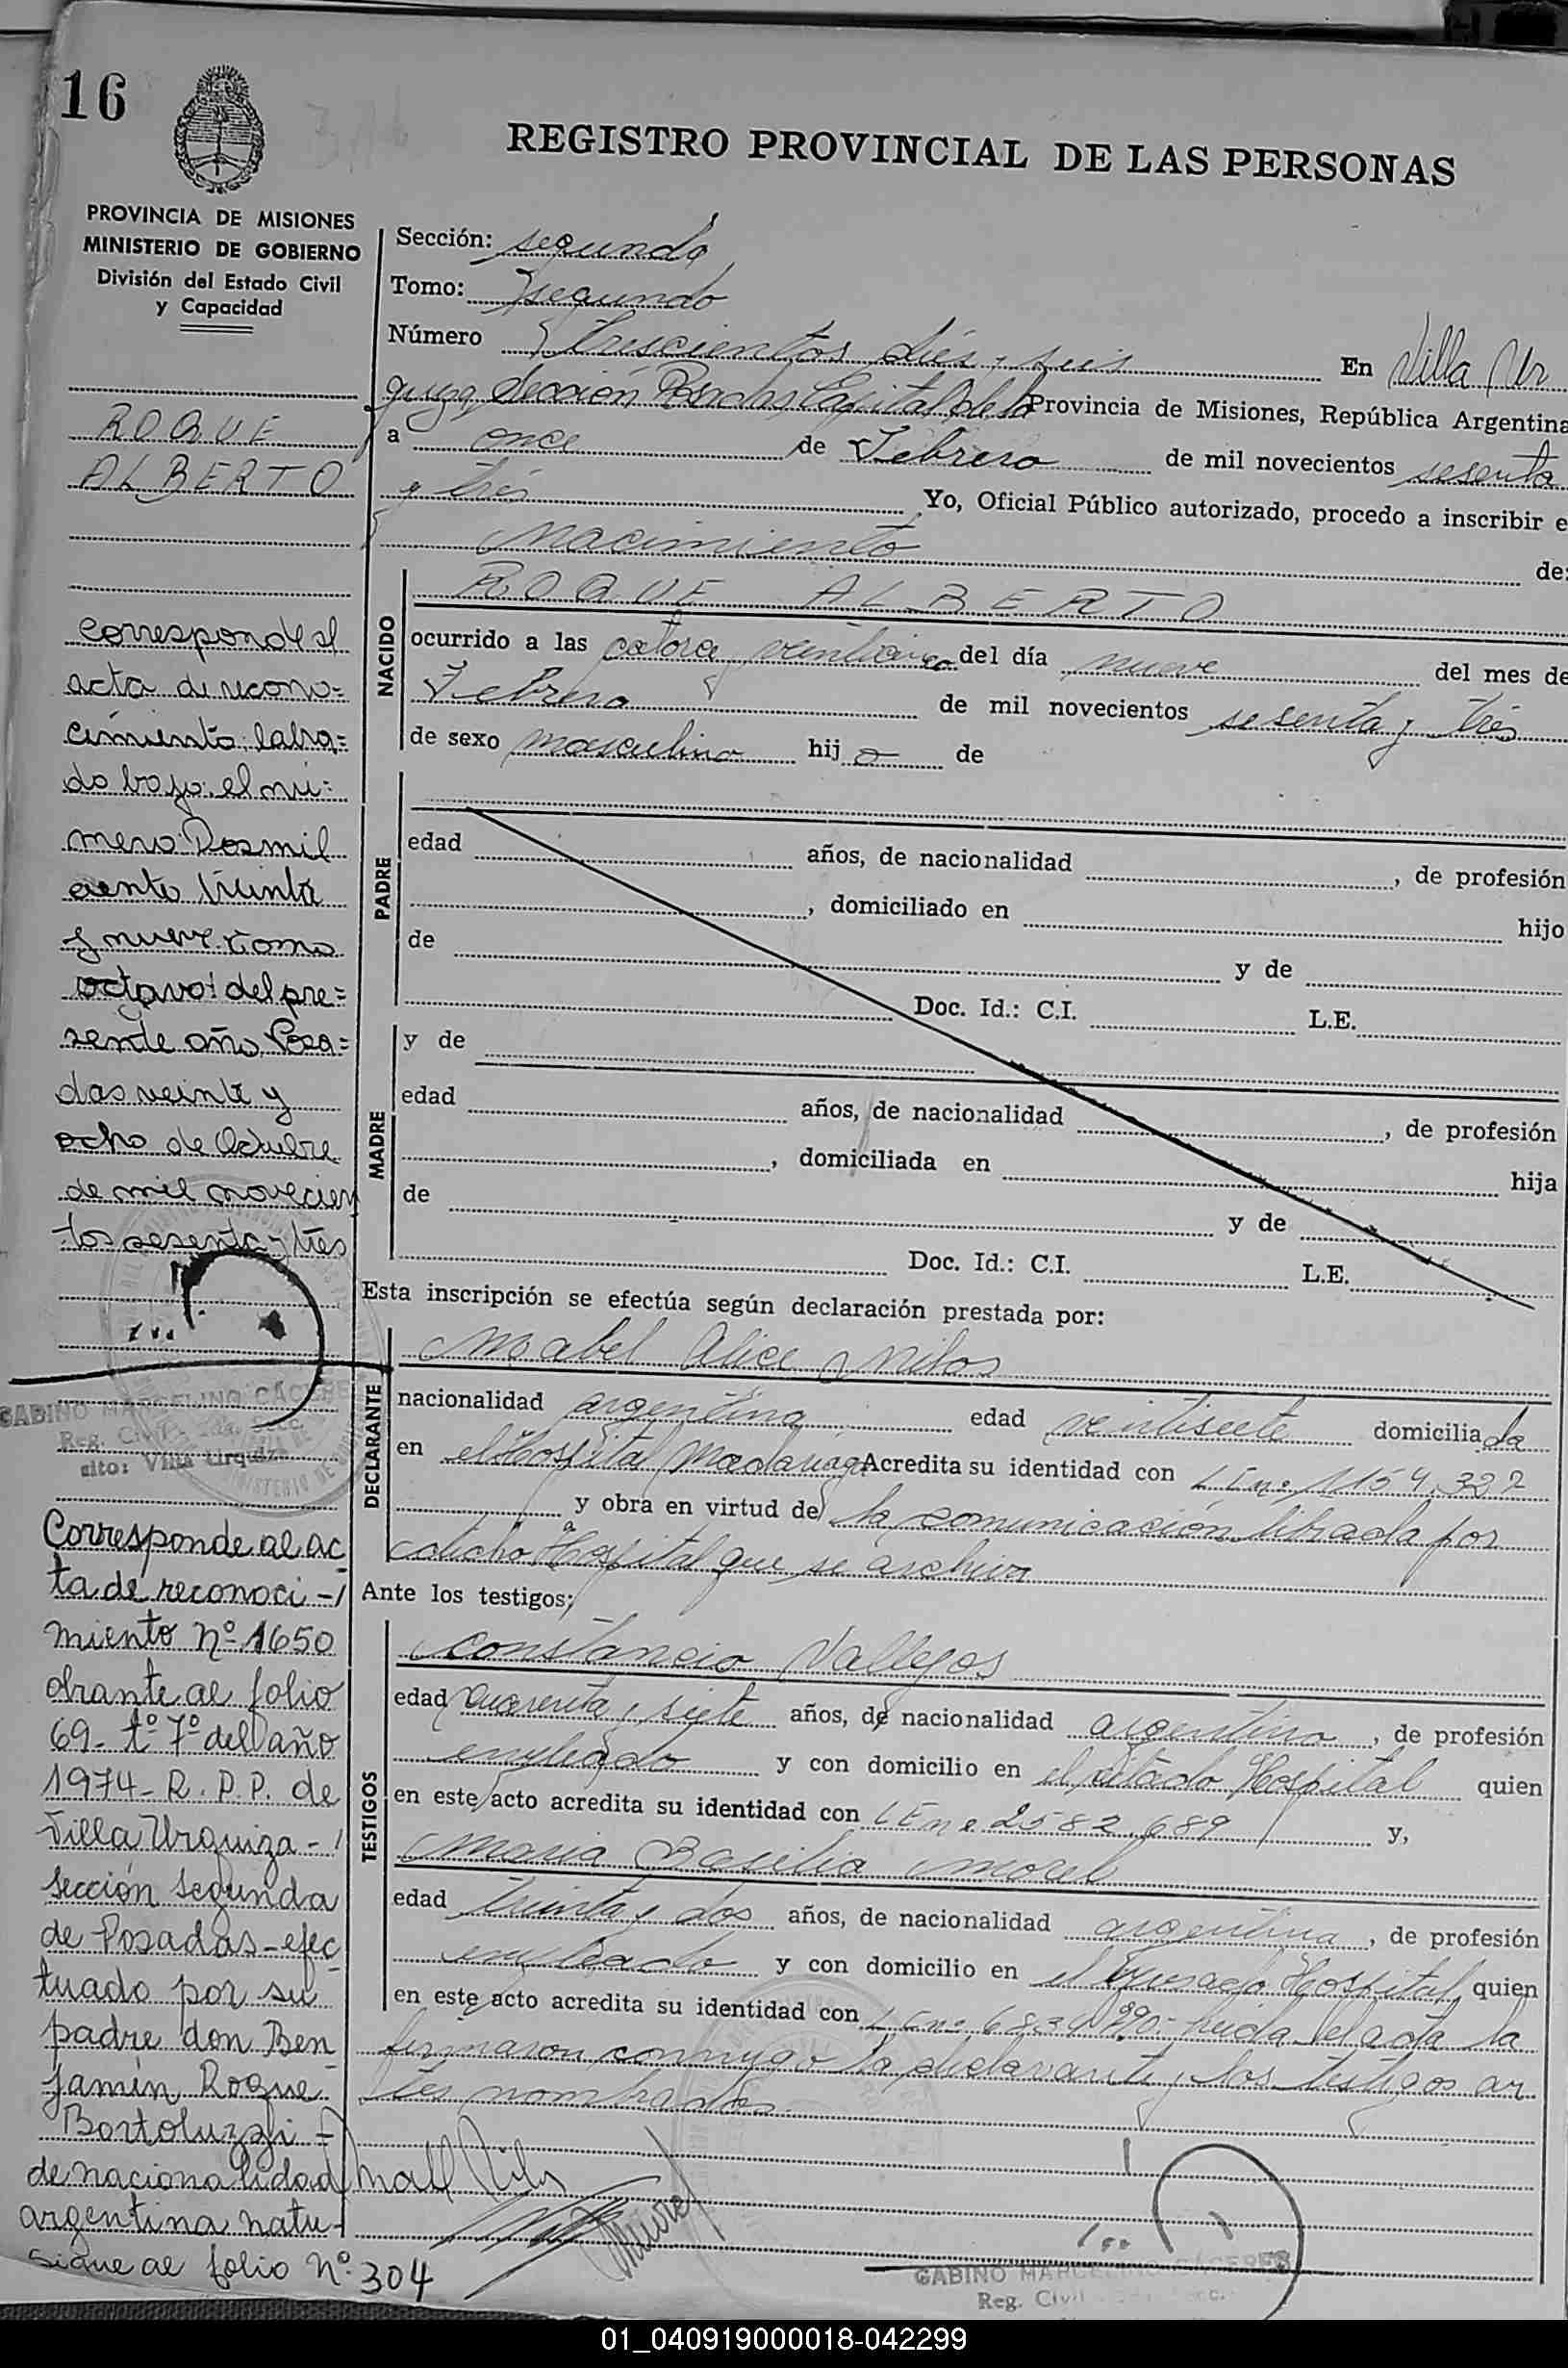 16
REGISTRO PROVINCIAL DE LAS PERSONAS
PROVINCIA DE MISIONES
MINISTERIO DE GOBIERNO
División del Estado Civil
y Capacidad
ROQUE
ALBERTO
corresponde al
acta de recono=
cimiento labra=
do bajo el nú=
mero Dos mil
ciento treinta
y nueve tomo
octavo del pre=
sente año Posa=
das veinte y
ocho de Octubre
de mil novecien
tos sesenta y tres
GABINO MARCELINO CÁCERES
Reg. Civil 2da. Secc.
sito: Villa Urquiza
Corresponde al ac
ta de reconoci-/
miento Nº 1650
obrante al folio
69- tº 7º del año
1974- R. P. P. de
Villa Urquiza-/
sección segunda
de Posadas-efec
tuado por su
padre don Ben
jamín Roque
Bortoluzzi-
de nacionalidad
argentina natu-
sigue al folio Nº 304
Sección: segunda
Tomo: segundo
Número trescientos diés y seis En Villa Ur
quiza Sección Posadas Capital de la Provincia de Misiones, República Argentina
a once de Febrero de mil novecientos sesenta
y trés Yo, Oficial Público autorizado, procedo a inscribir e
Nacimiento de:
NACIDO
ROQUE ALBERTO
ocurrido a las catorce veinticinco del día nueve del mes de
Febrero de mil novecientos sesenta y trés
de sexo masculino hijo de
PADRE
edad años, de nacionalidad , de profesión
, domiciliado en hijo
de y de
Doc. Id.: C.I. L.E.
MADRE
y de
edad años, de nacionalidad , de profesión
, domiciliada en hija
de y de
Doc. Id.: C.I. L.E.
Esta inscripción se efectúa según declaración prestada por:
DECLARANTE
Mabel Alice Nilos
nacionalidad argentina edad veintisiete domiciliada
en el Hospital Madariaga Acredita su identidad con L E nº 1154.322
y obra en virtud de la comunicación librada por
dicho Hospital que se archiva
Ante los testigos;
TESTIGOS
Constancio Vallejos
edad cuarenta y siete años, de nacionalidad argentina, de profesión
empleado y con domicilio en el citado Hospital quien
en este acto acredita su identidad con L E nº 2582.689 y,
Maria Basilia Morel
edad treinta y dos años, de nacionalidad argentina, de profesión
empleado y con domicilio en el Hospital, quien
en este acto acredita su identidad con L E nº leida el acta la
firmaron conmigo la declarante y los testigos an
tes nombrados
Morel
GABINO MARCELINO CÁCERES
Reg. Civil Secc.
01_040919000018-042299